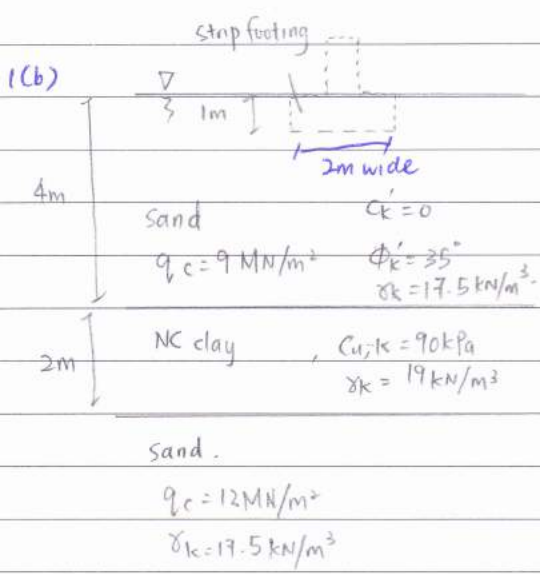 strip footing
1(b)
1m
2m wide
4m
Sand
C'k = 0
qc = 9 MN/m²
Φ'k = 35°
γk = 17.5 kN/m³.
NC clay , Cu,k = 90kPa
2m
γk = 19 kN/m³
Sand.
qc = 12MN/m²
γk = 17.5 kN/m³